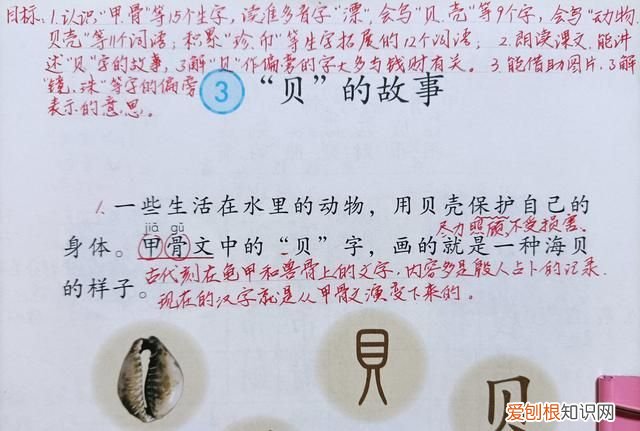 目标：1.认识“甲、骨”等15个生字，读准多音字“漂”，会写“贝、壳”等9个字，会写“动物、
贝壳”等11个词语；积累“珍、币”等生字拓展的12个词语；2.朗读课文，能讲
述“贝”字的故事，了解“贝”作偏旁的字大多与钱财有关。3.能借助图片，了解
“镜、珠”等字的偏旁
表示的意思。
3 “贝”的故事
1. 一些生活在水里的动物，用贝壳保护自己的
尽力照顾，不受损害。
jiǎ gǔ
身体。甲骨文中的“贝”字，画的就是一种海贝
古代刻在龟甲和兽骨上的文字，内容多是殷人占卜的记录。
的样子。现在的汉字就是从甲骨文演变下来的。
貝
贝
爱刨根知识网